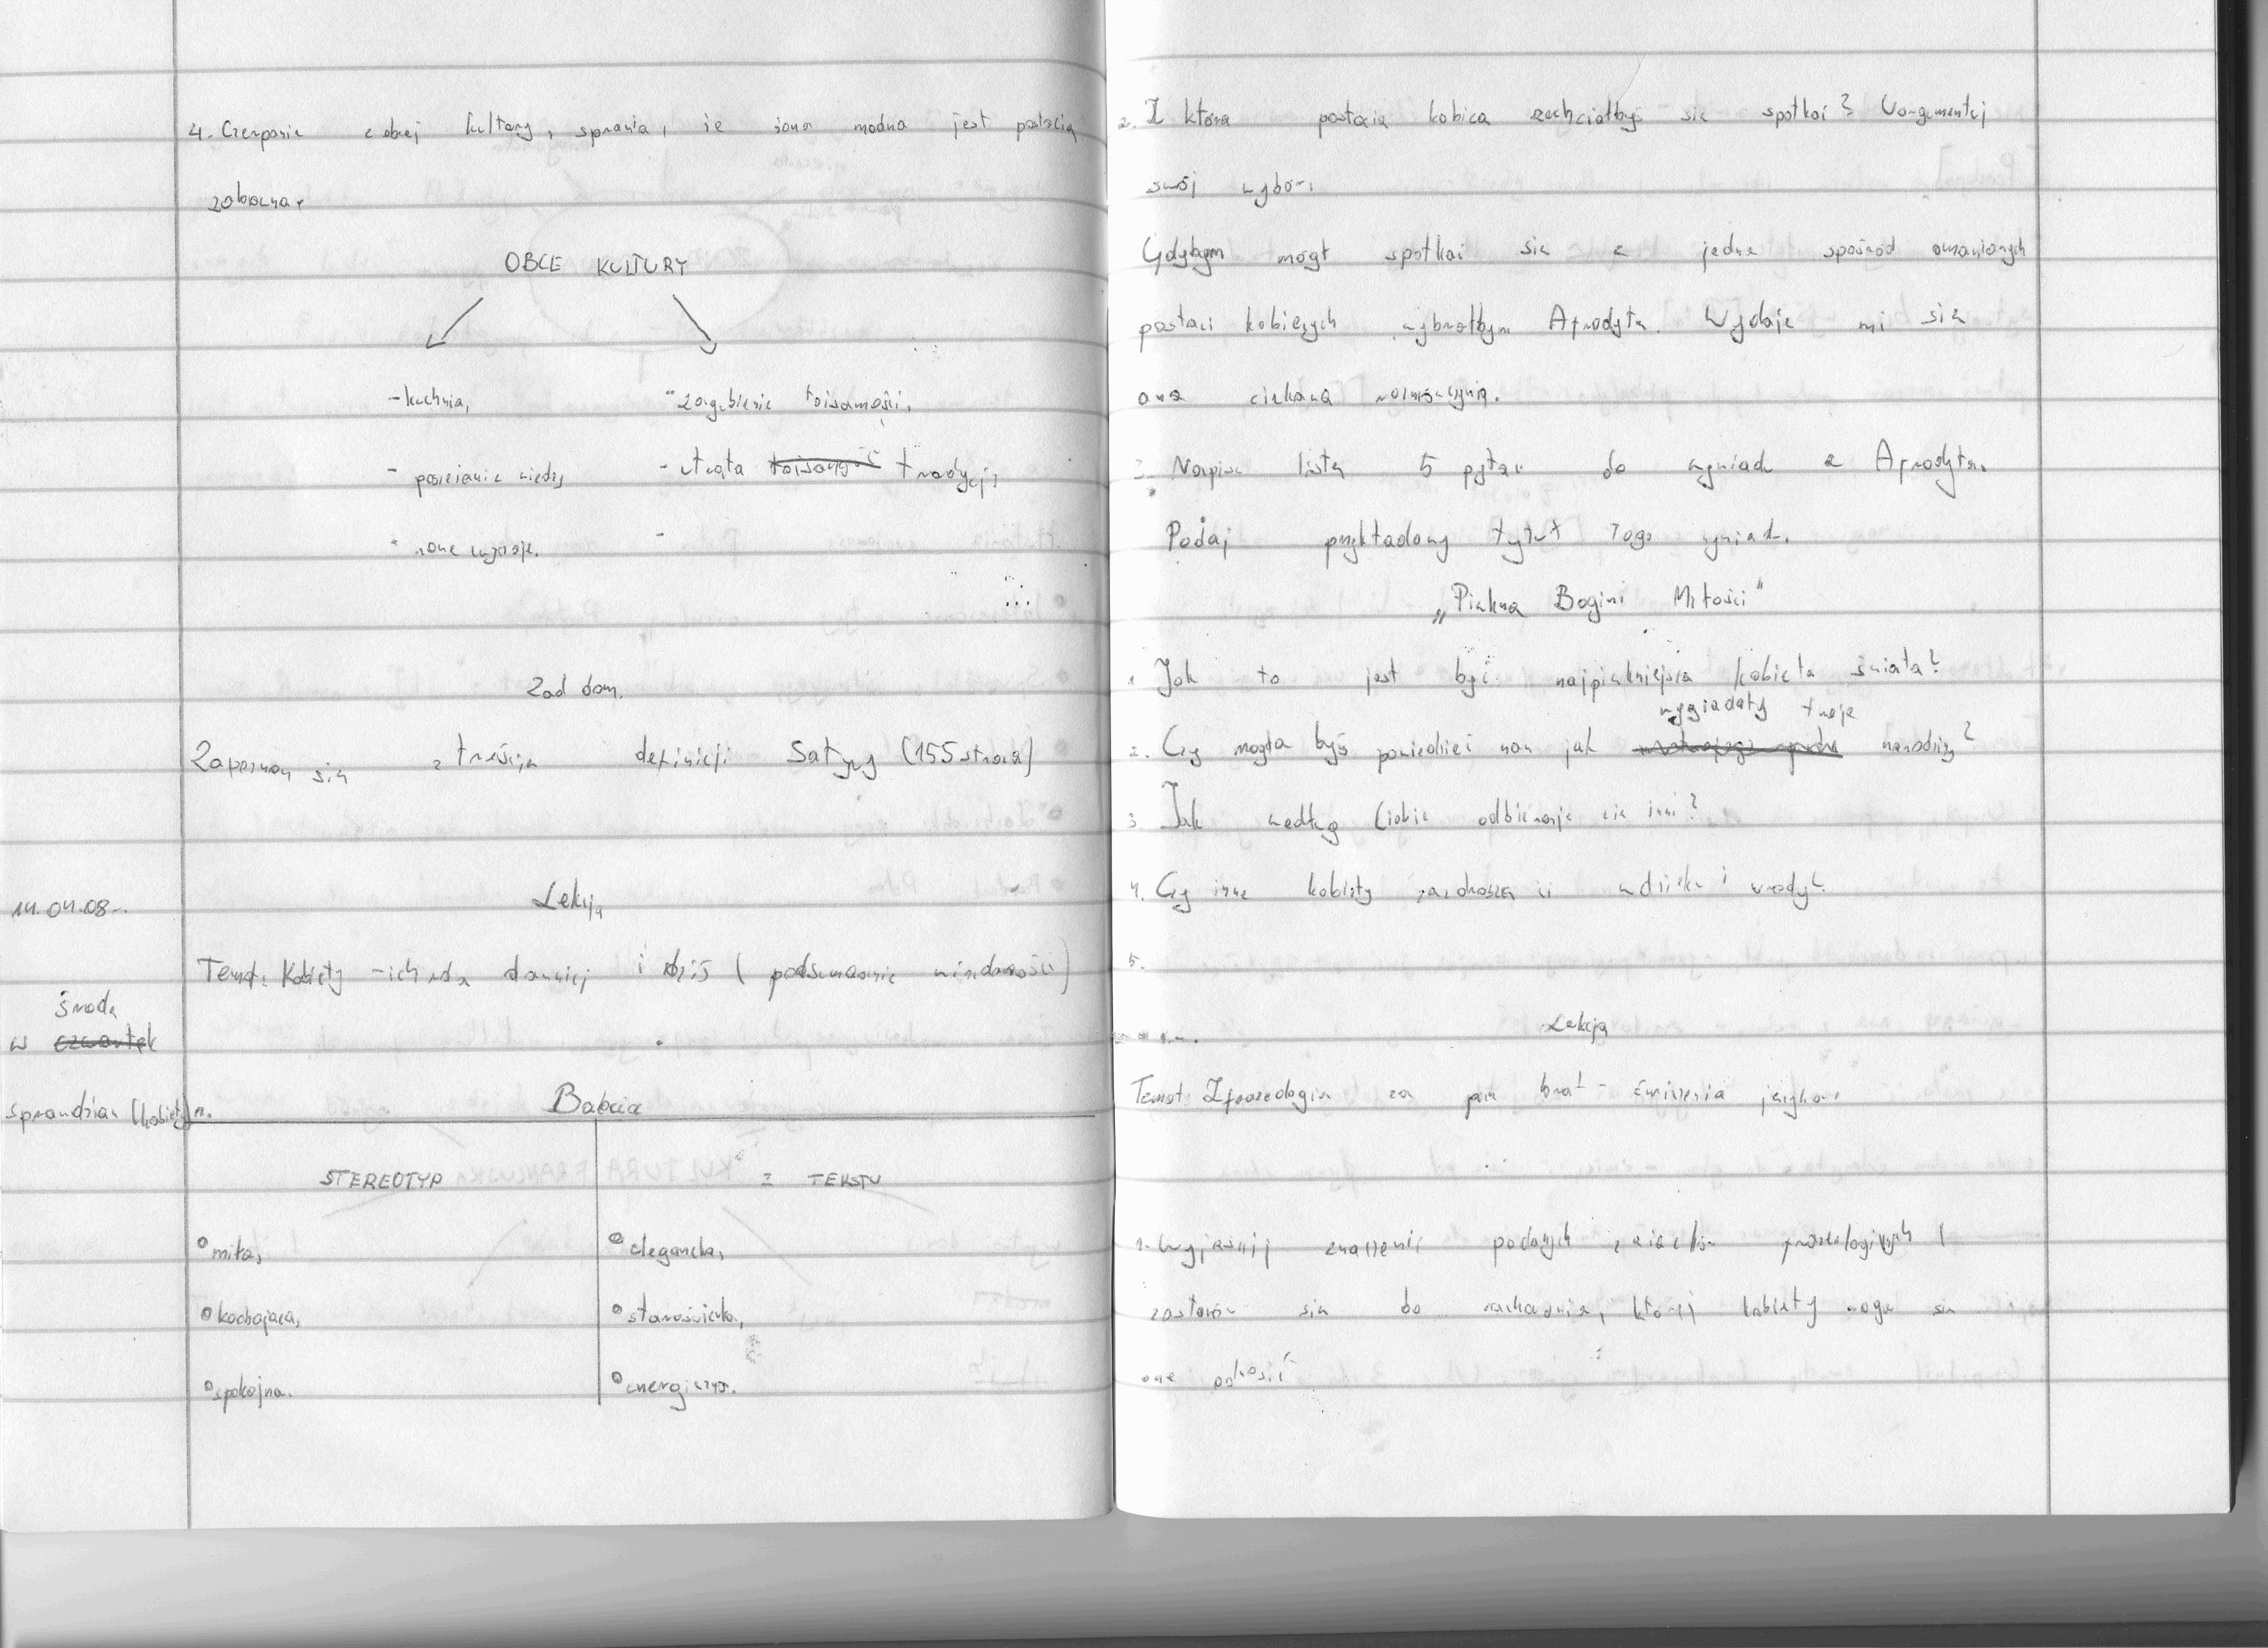 4. Czerpanie z obcej kultury, sprawia, że żona modna jest postacią
zabawną.
OBCE KULTURY
- kuchnia, - zagubienie tożsamości,
- poszerzanie wiedzy - utrata tożsamość tradycji,
- nowe
Zad dom.
Zapoznaj się z treścią definicji Satyry (155 strona)
14.04.08r. Lekcja
Temat: Kobiety - ich rola dawniej i dziś (podsumowanie wiadomości)
środę
w czwartek
sprawdzian (kobiety)
1. Babcia
STEREOTYP Z TEKSTU
• miła, • elegancka,
• kochająca, • staroświecka,
• spokojna. • energiczna.
2. Z którą postacią kobiecą zechciałbyś się spotkać? Uargumentuj
swój wybór.
Gdybym mógł spotkać się z jedną spośród omawianych
postaci kobiecych wybrałbym Afrodytę. Wydaje mi się
ona ciekawą rozmówczynią.
3. Napisz listę 5 pytań do wywiadu z Afrodytą.
Podaj przykładowy tytuł tego wywiadu.
„Piękna Bogini Miłości"
1. Jak to jest być najpiękniejszą kobietą świata?
wyglądały twoje
2. Czy mogła byś powiedzieć nam jak narodziny?
3. Jak według Ciebie odbierają cię inni?
4. Czy inne kobiety zazdroszczą ci wdzięku i urody?
5.
Lekcja
Temat: Z frazeologią za pan brat - ćwiczenia językowe
1. Wyjaśnij znaczenie podanych związków frazeologicznych i
zastanów się do której kobiety mogą się
one odnosić